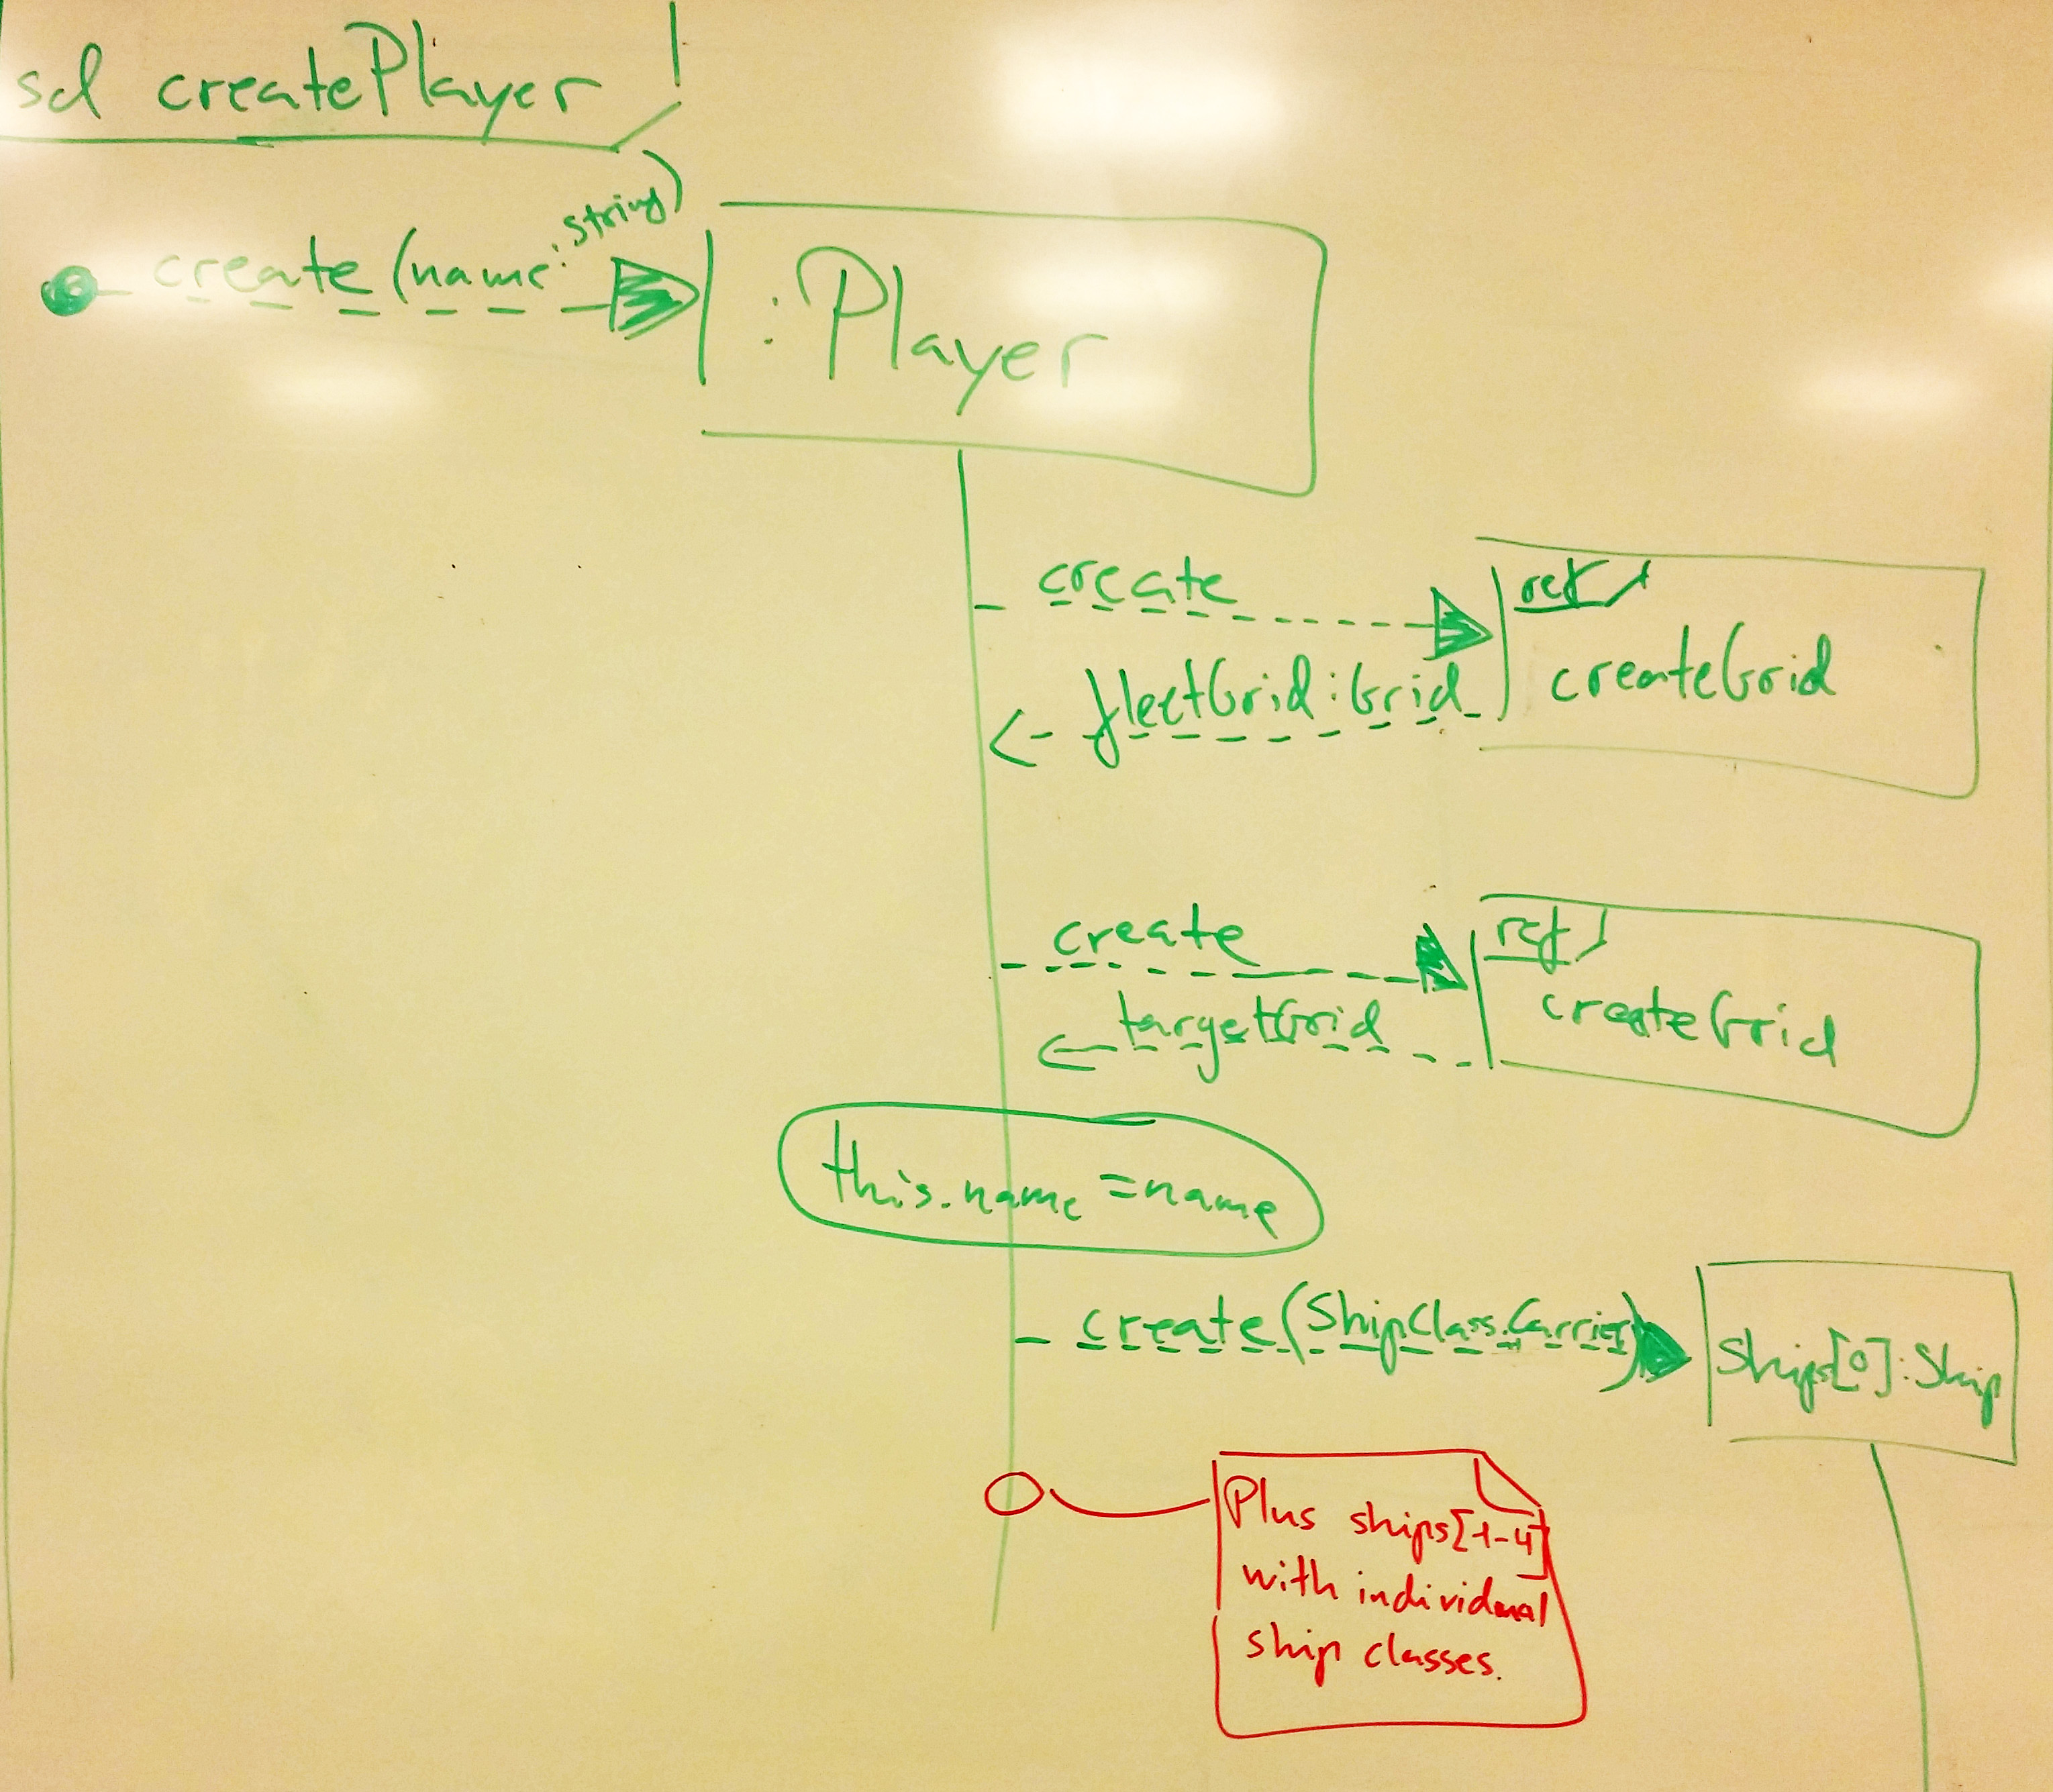 sd createPlayer
create(name: string)
:Player
create
ref
createGrid
fleetGrid:Grid
create
ref
createGrid
targetGrid
this.name = name
create(ShipClass.Carrier)
Ships[0]:Ship
Plus ships[1-4]
with individual
ship classes.